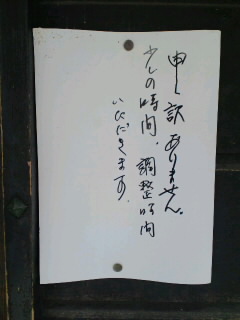 申し訳ありません。
少しの時間、調整時間
いただきます。